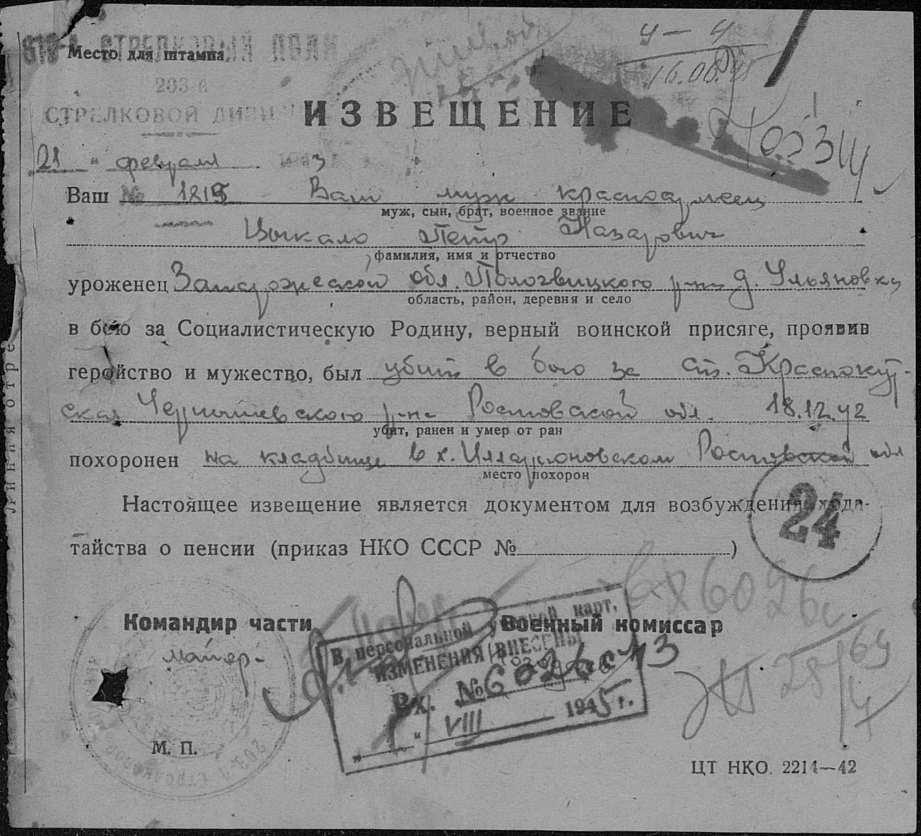 619-й СТРЕЛКОВЫЙ ПОЛК
Место для штампа
203-й
СТРЕЛКОВОЙ ДИВИ
4-4
16.08
ИЗВЕЩЕНИЕ
21 " февраля 3
Ваш № 1819 Ваш муж красноармеец
муж, сын, брат, военное звание
Цыкало Петр Назарович
фамилия, имя и отчество
уроженец Запорожской обл. р-на д. Ульяновка
область, район, деревня и село
в бою за Социалистическую Родину, верный воинской присяге, проявив
геройство и мужество, был убит в бою за ст. Краснокут-
ская Чернышевского р-на Ростовской обл. 18.12.42
убит, ранен и умер от ран
похоронен на кладбище в х. Илларионовском Ростовской обл
место похорон
Настоящее извещение является документом для возбуждения хода-
тайства о пенсии (приказ НКО СССР № )
24
вх6026с
Командир части
Военный комиссар
майор
В персональной учетной карт.
ИЗМЕНЕНИЯ ВНЕСЕНЫ
Вх. № 6026с
" " VIII 1945 г.
М. П.
ЦТ НКО. 2214—42
Линия отре